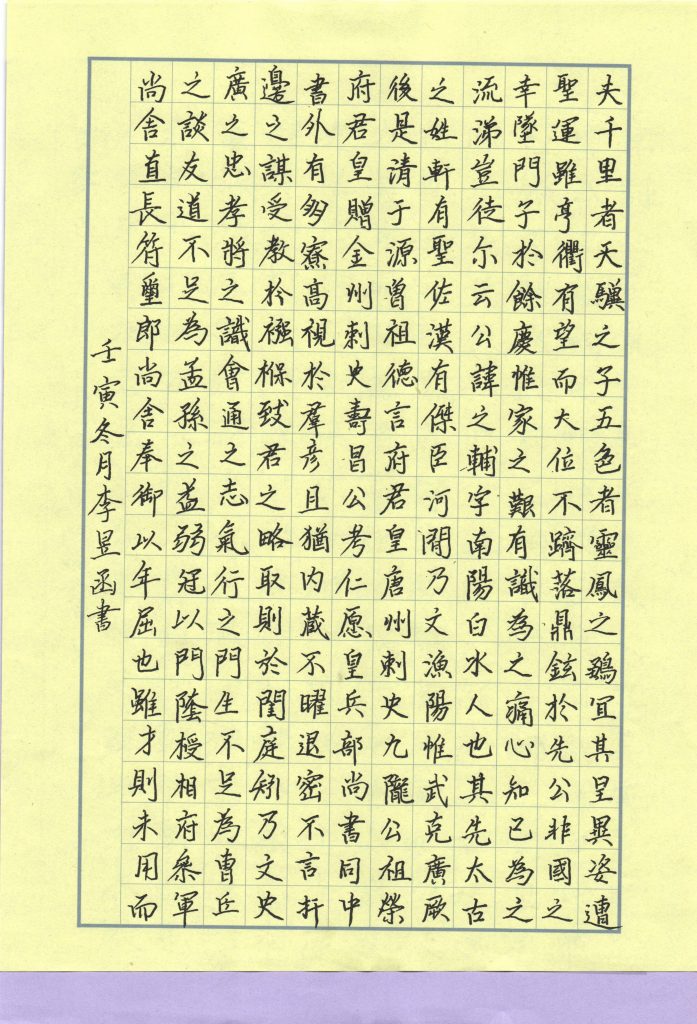 夫千里者天驥之子五色者靈鳳之鶵宜其呈異姿遭
聖運雖亨衢有望而大位不躋落鼎鉉於先公非國之
幸墜門子於餘慶惟家之艱有識為之痛心知已為之
流涕豈徒尔云公諱之輔字南陽白水人也其先太古
之姓軒有聖佐漢有傑臣河間乃文漁陽惟武克廣厥
後是清于源曾祖德言府君皇唐州刺史九隴公祖榮
府君皇贈金州刺史壽昌公考仁愿皇兵部尚書同中
書外有多寮高視於羣彦且猶内蔵不曜退密不言扞
邊之謀受教於襁褓致君之略取則於閨庭矧乃文史
廣之忠孝將之識會通之志氣行之門生不足為曹丘
之談友道不足為孟孫之益弱冠以門蔭授相府叅軍
尚舍直長符璽郎尚舍奉御以年屈也雖才則未用而
壬寅冬月李昱函書